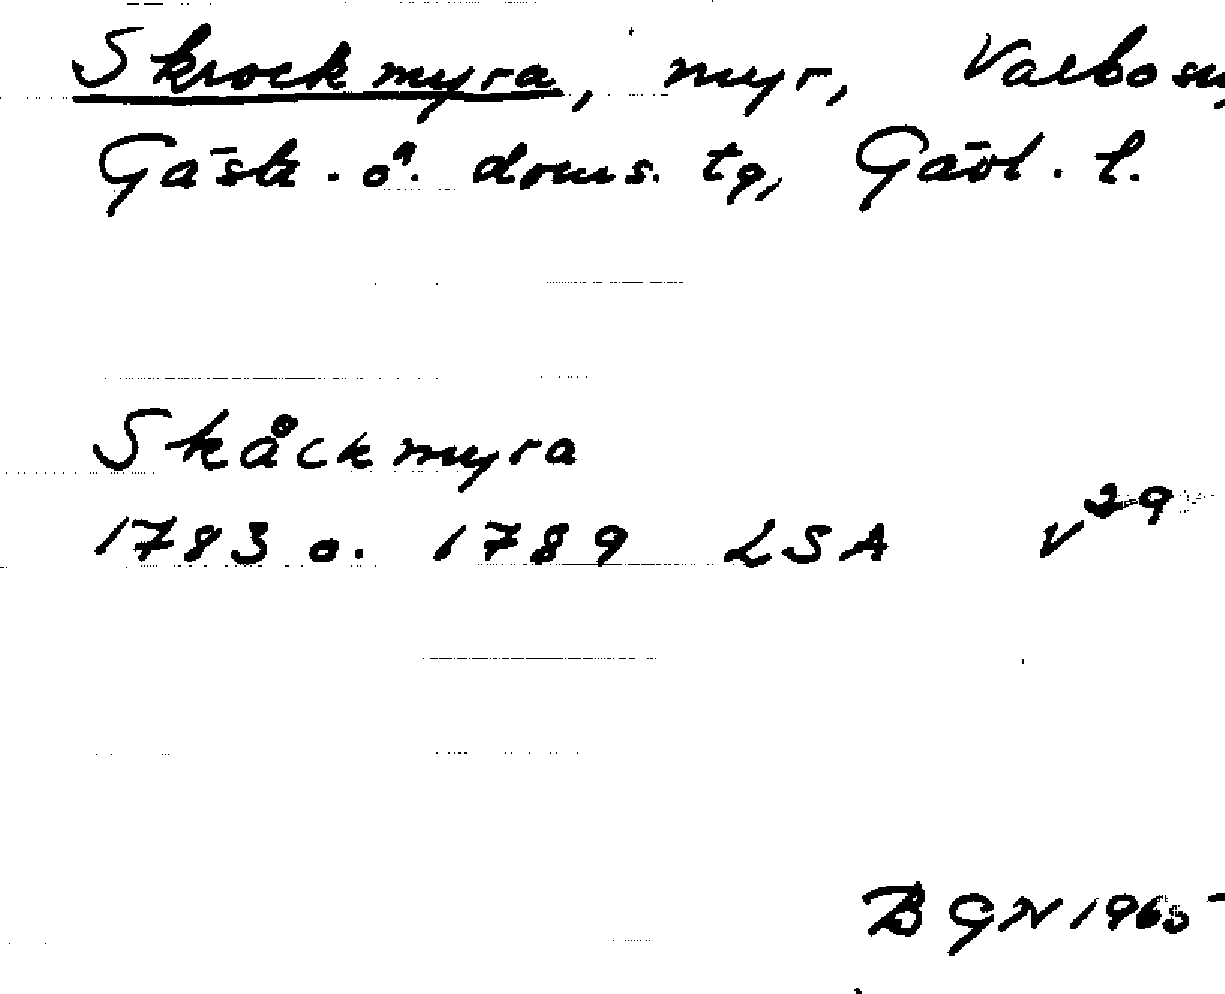 Skrockmyra, myr, Valbo sn,
Gästr. ö. doms. tg, Gävl. l.
Skåckmyra
1783 o. 1789 LSA V 29
BGN 1965